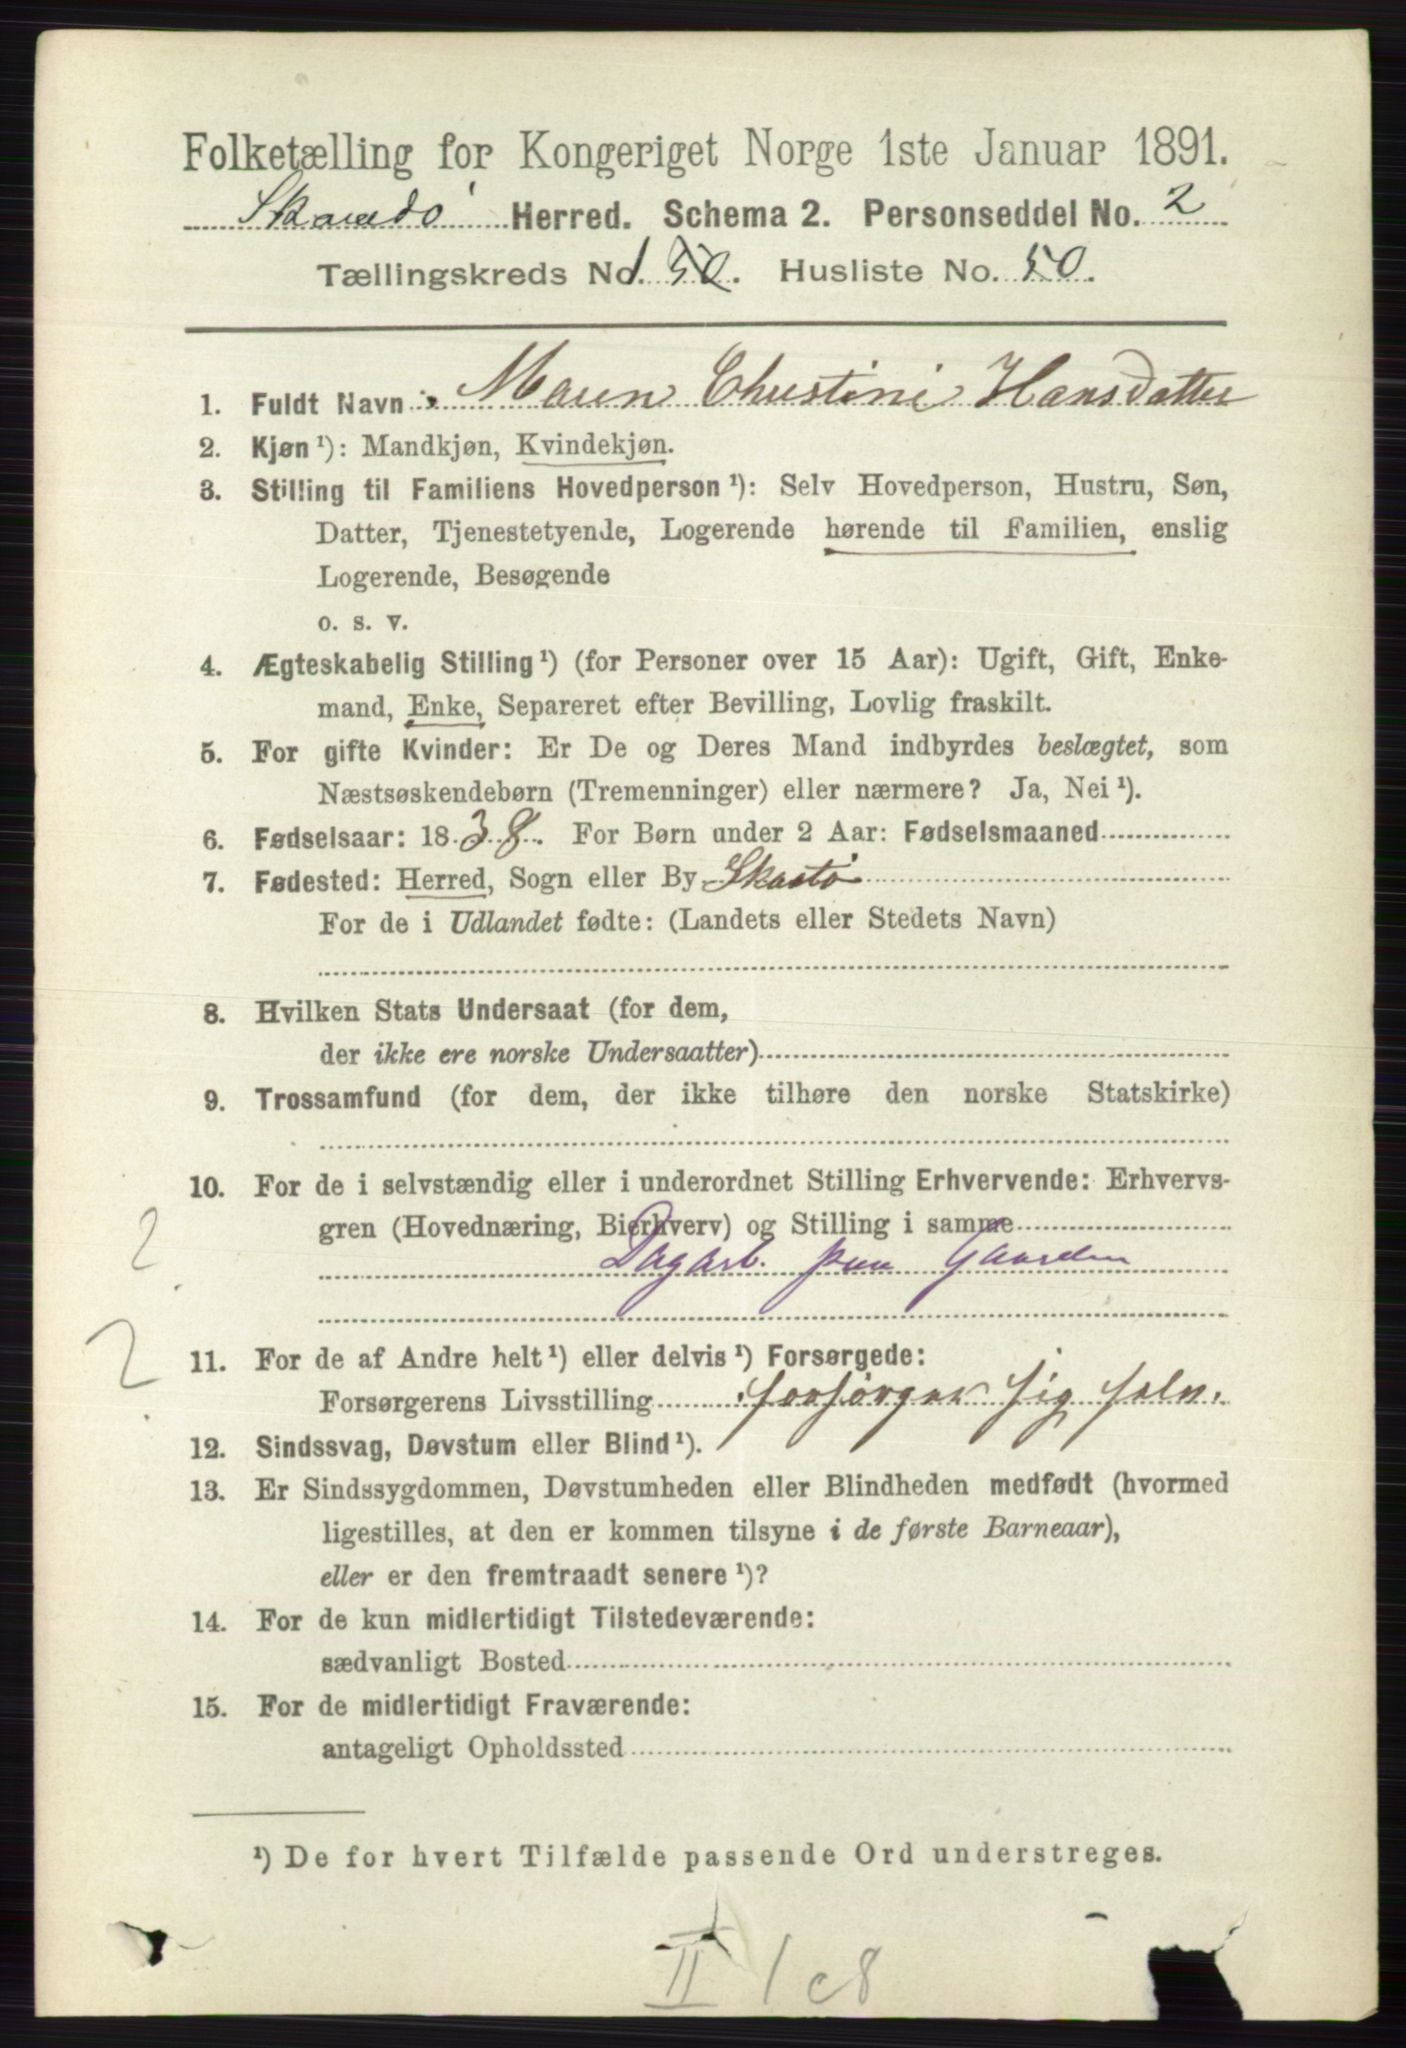 Folketælling for Kongeriget Norge 1ste Januar 1891.
Herred. Schema 2. Personseddel No. 2
Tællingskreds No. 1 50. Husliste No. 50.
1. Fuldt Navn: Maren Christine Hansdatter
2. Kjøn ¹): Mandkjøn, Kvindekjøn.
3. Stilling til Familiens Hovedperson ¹): Selv Hovedperson, Hustru, Søn,
Datter, Tjenestetyende, Logerende hørende til Familien, enslig
Logerende, Besøgende
o. s. v.
4. Ægteskabelig Stilling ¹) (for Personer over 15 Aar): Ugift, Gift, Enke-
mand, Enke, Separeret efter Bevilling, Lovlig fraskilt.
5. For gifte Kvinder: Er De og Deres Mand indbyrdes beslægtet, som
Næstsøskendebørn (Tremenninger) eller nærmere? Ja, Nei ¹).
6. Fødselsaar: 1838. For Børn under 2 Aar: Fødselsmaaned
7. Fødested: Herred, Sogn eller By
For de i Udlandet fødte: (Landets eller Stedets Navn)
8. Hvilken Stats Undersaat (for dem,
der ikke ere norske Undersaatter)
9. Trossamfund (for dem, der ikke tilhøre den norske Statskirke)
10. For de i selvstændig eller i underordnet Stilling Erhvervende: Erhvervs-
gren (Hovednæring, Bierhverv) og Stilling i samme
Dagarb. paa Gaarden
2
2
11. For de af Andre helt ¹) eller delvis ¹) Forsørgede:
Forsørgerens Livsstilling forsørger sig selv.
12. Sindssvag, Døvstum eller Blind ¹).
13. Er Sindssygdommen, Døvstumheden eller Blindheden medfødt (hvormed
ligestilles, at den er kommen tilsyne i de første Barneaar),
eller er den fremtraadt senere ¹)?
14. For de kun midlertidigt Tilstedeværende:
sædvanligt Bosted
15. For de midlertidigt Fraværende:
antageligt Opholdssted
¹) De for hvert Tilfælde passende Ord understreges.
II 1 c8